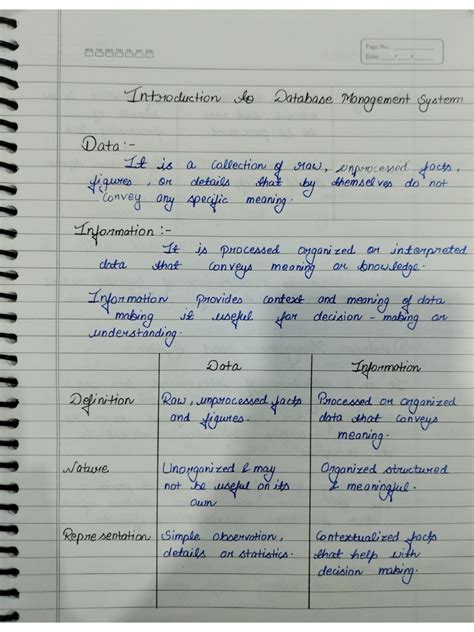 Page No.:
Date: / /
Introduction to Database Management System
Data :-
It is a collection of raw, unprocessed facts,
figures, or details that by themselves do not
convey any specific meaning.
Information :-
It is processed organized or interpreted
data that conveys meaning or knowledge.
Information provides context and meaning of data
making it useful for decision-making or
understanding.
Data Information
Definition Raw, unprocessed facts Processed or organized
and figures. data that conveys
meaning.
Nature Unorganized & may Organized structured
not be useful on its & meaningful.
own
Representation Simple observation, Contextualized facts
details or statistics. that help with
decision making.